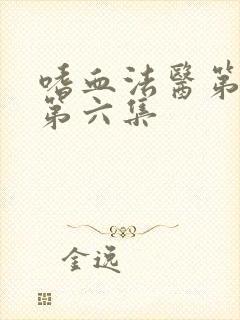 嗜血法醫第
第六集
金逸